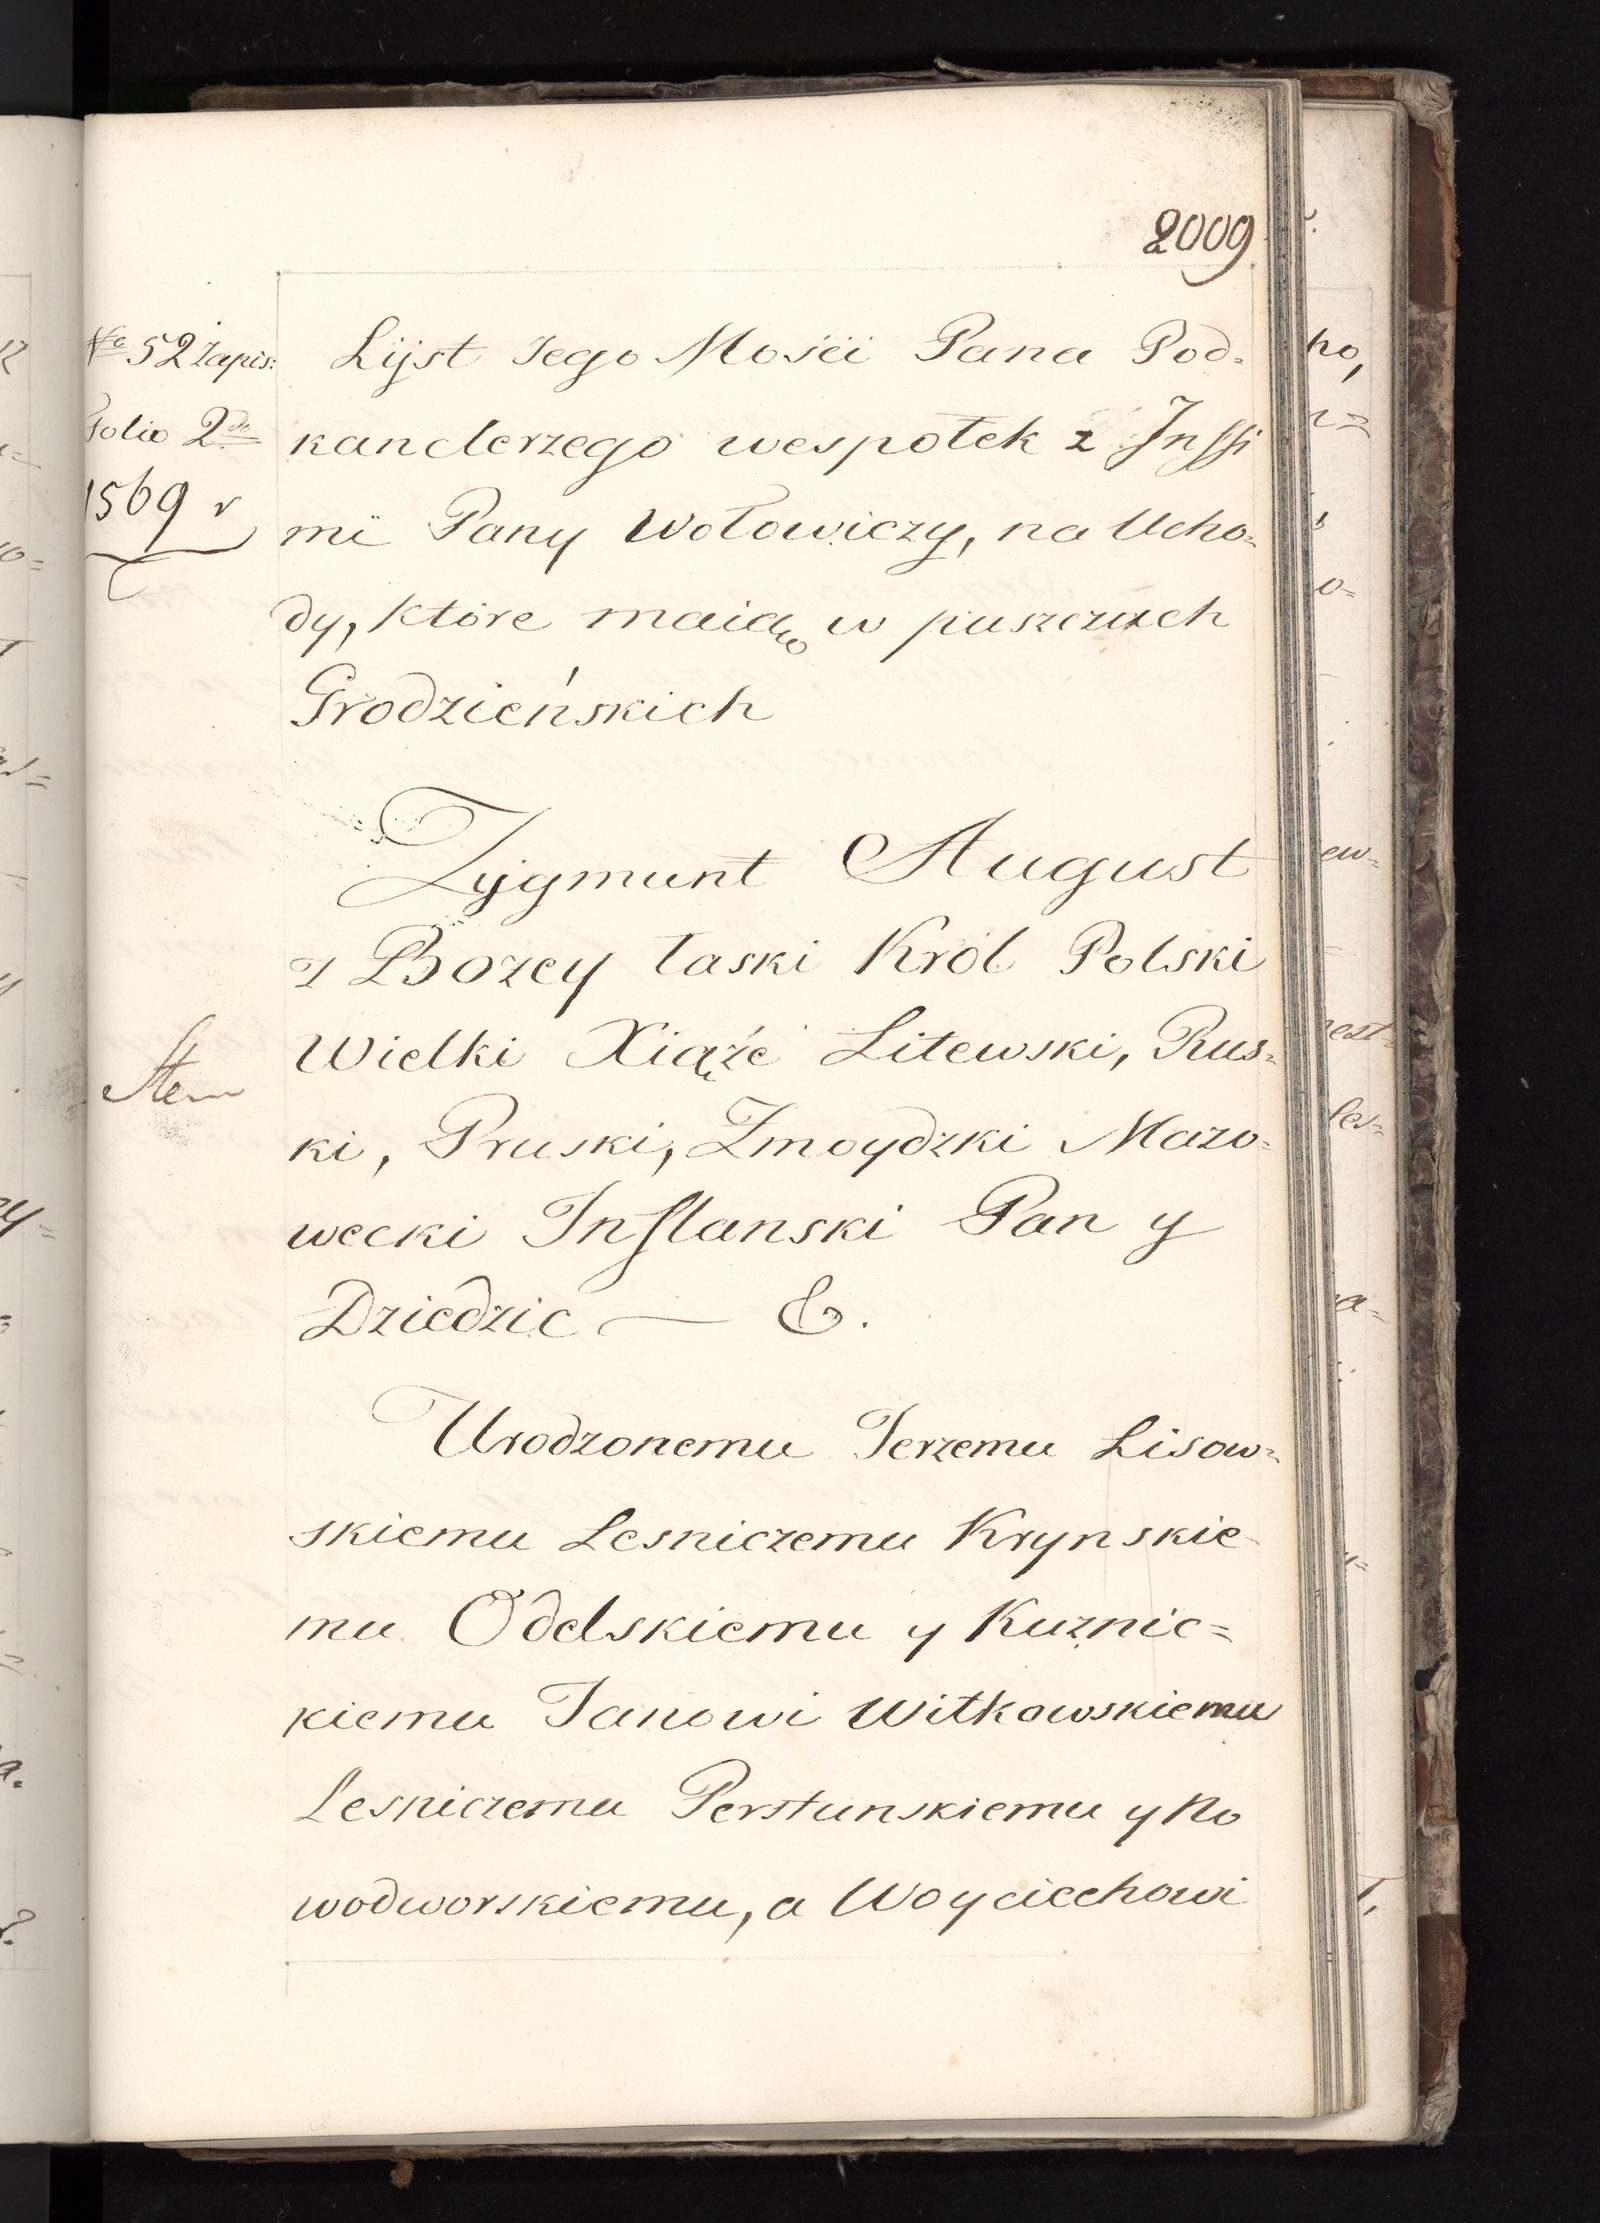 2009
No 52 Zapis:
Folio 2do
1569 r
Lijst Jego Mośći Pana Pod=
kanclerzego wespołek z Inszy
mi Pany Wołowiczy, na Ucho=
dy, które maią w puszczach
Grodzieńskich
Zygmunt August
z Bozey łaski Król Polski
Wielki Xiąźe Litewski, Rus=
ki, Pruski, Zmoydzki Mazo=
wecki Inflanski Pan y
Dziedzic — &.
Urodzonemu Jerzemu Lisow=
skiemu Lesniczemu Krynskie
mu Odelskiemu y Kuznic=
kiemu Janowi Witkowskiemu
Lesniczemu Perstunskiemu y No
wodworskiemu, a Woyciechowi